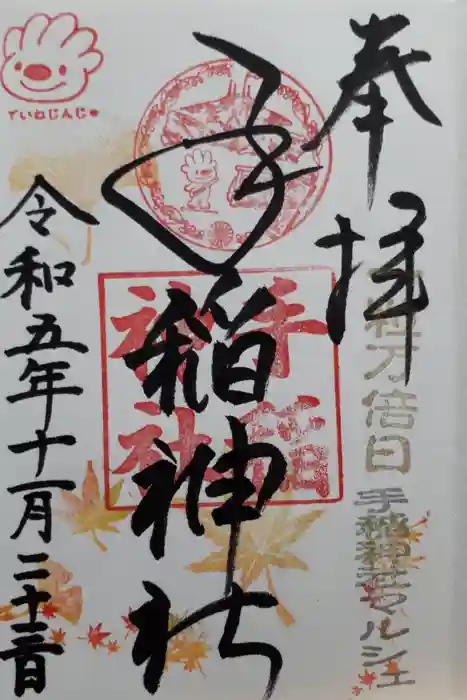 奉拝
一粒万倍日
手稲神社マルシェ
手稲神社
手稲神社
令和五年十一月二十三日
ていねじんじゃ